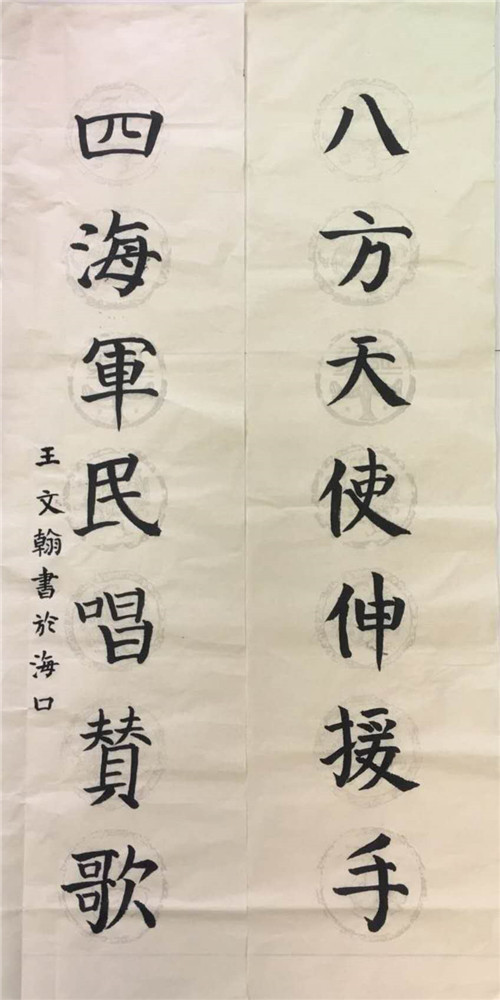 八方天使伸援手
四海軍民唱賛歌
王文翰書於海口